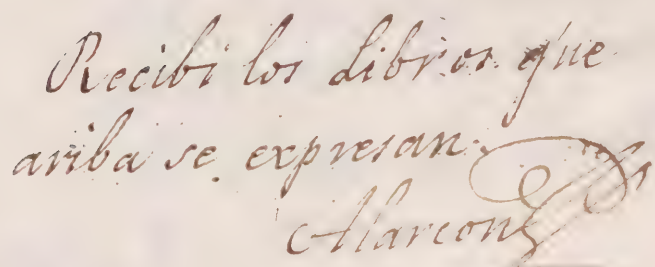 Recibi los Libros que
ariba se expresan.
Alarcon